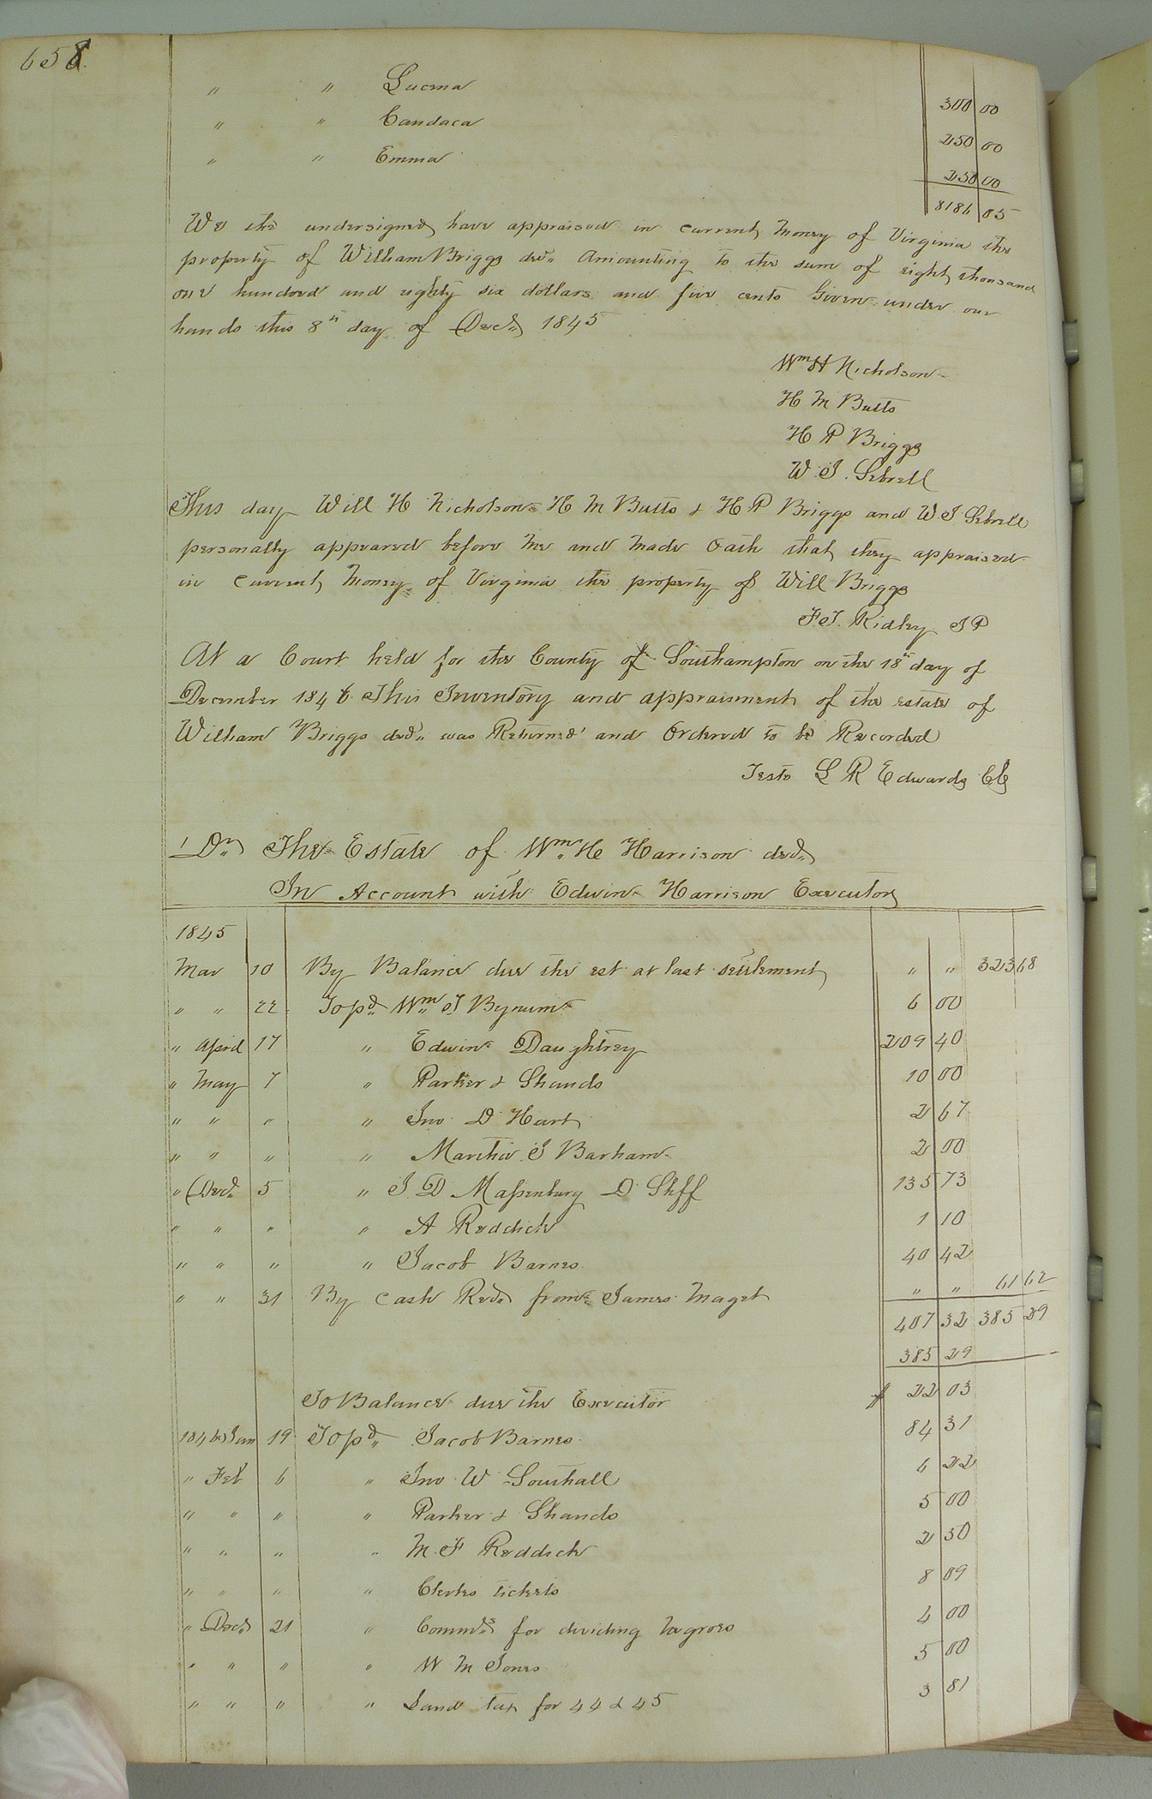 658.
" " Lucina 300 00
" " Candaca 250 00
" " Emma 250 00
8186 05
We the undersigned have appraised in current money of Virginia the
property of William Briggs decd. Amounting to the sum of eight thousand
one hundred and eighty six dollars and five cents Given under our
hands this 8th day of Decr. 1845
Wm H Nicholson
H M Butts
H P Briggs
W. J. Sebrell
This day Will H Nicholson H M Butts & H P Briggs and W J Sebrell
personally appeared before me and made oath that they appraised
in current money of Virginia the property of Will Briggs
F J. Ridley J P
At a Court held for the County of Southampton on the 18th day of
December 1846 This Inventory and appraisment of the estate of
William Briggs decd. was Returned and Ordered to be Recorded
Teste L R Edwards Clk
Dr. The Estate of Wm. H Harrison decd.
In Account with Edwin Harrison Executor
1845
Mar 10 By Balance due the est at last settlement " " 323 68
" " 22 To pd. Wm. J Bynum 6 00
" April 17 " Edwin Daughtrey 209 40
" May 7 " Parker & Shands 10 00
" " " " Jno D Hart 2 67
" " " " Martha J Barham 2 00
" Decr. 5 " J D Massenburg D Shff 135 73
" " " " A Reddick 1 10
" " " " Jacob Barnes 40 42
" " 31 By Cash Recd from James Maget " " 61 62
407 32 385 29
385 29
To Balance due the Executor $ 22 03
1846 Jan 19 To pd. Jacob Barnes 84 31
" Feb 6 " Jno W Southall 6 22
" " " " Parker & Shands 5 00
" " " " M. F Reddick 2 50
" " " " Clerks tickets 8 09
" Decr 21 " Commrs. for dividing negroes 4 00
" " " " W M Jones 5 00
" " " " Land tax for 44 & 45 3 81